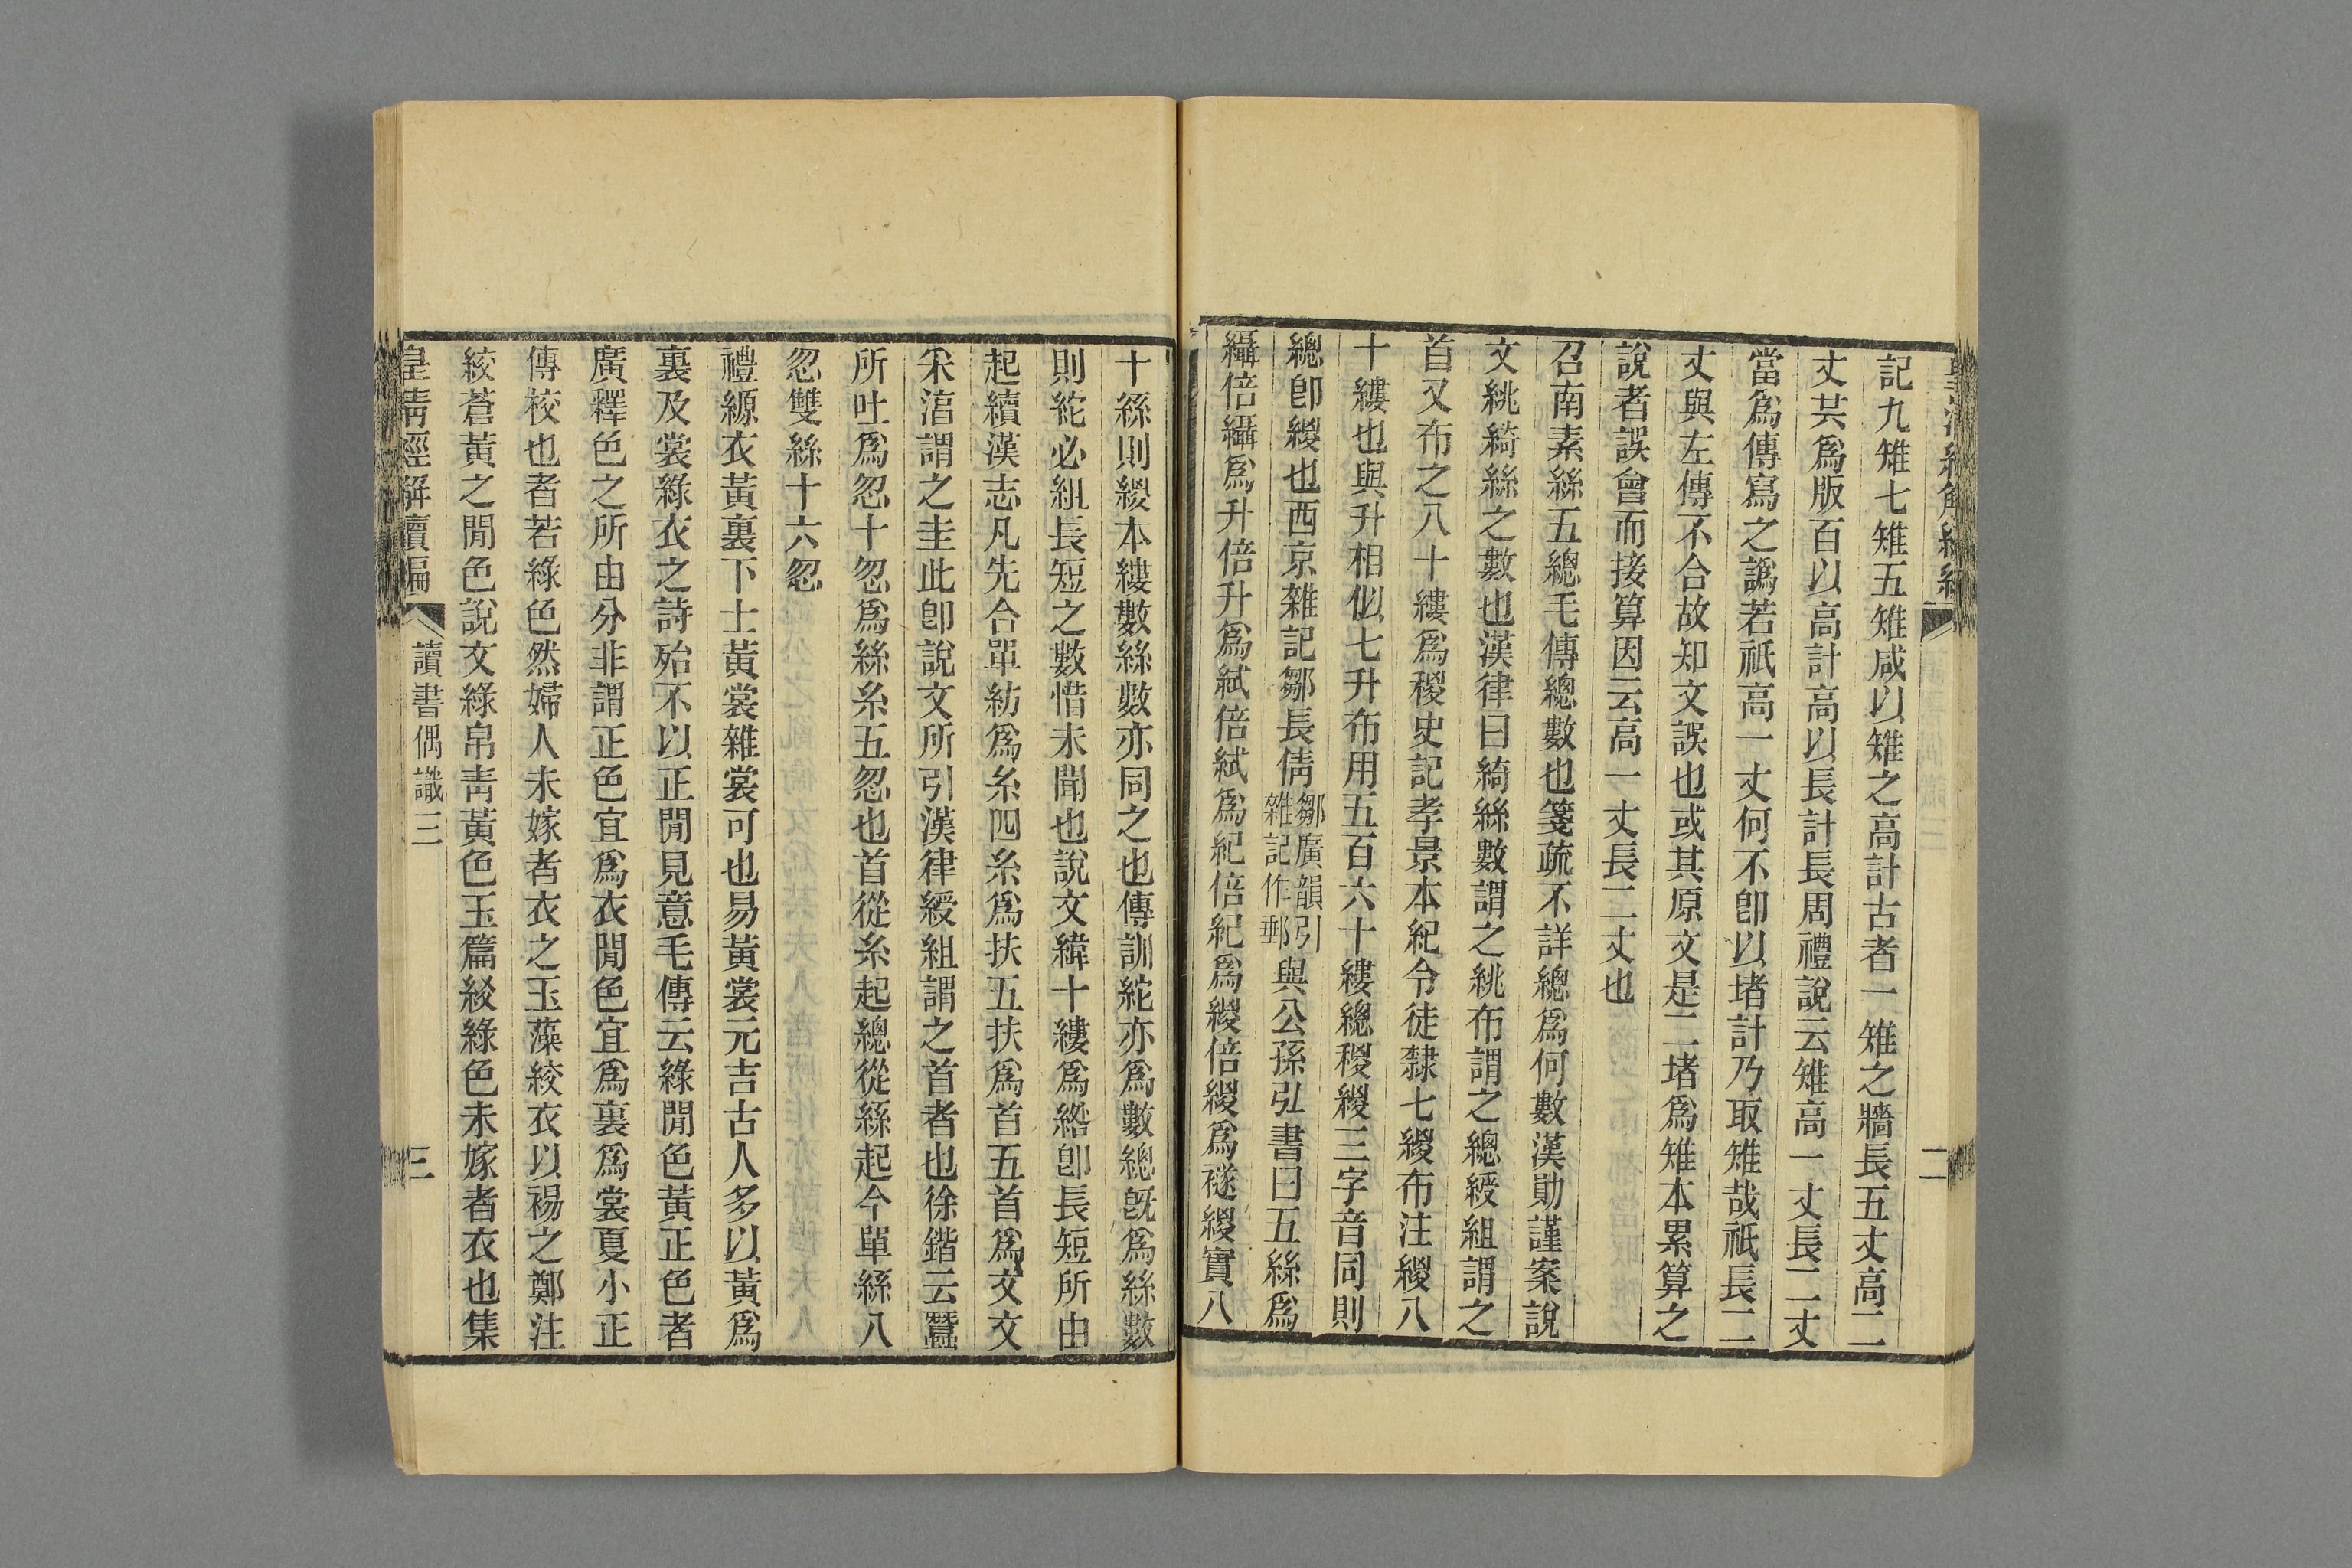 記九雉七雉五雉咸以雉之高計古者一雉之牆長五丈高二
丈其爲版百以高計高以長計長周禮說云雉高一丈長二丈
當爲傳寫之譌若祇高一丈何不卽以堵計乃取雉哉祇長二
丈與左傳不合故知文誤也或其原文是二堵爲雉本累算之
說者誤會而接算因云高一丈長二丈也
召南素絲五總毛傳總數也箋疏不詳總爲何數漢勛謹案說
文絩綺絲之數也漢律曰綺絲數謂之絩布謂之總綬組謂之
首又布之八十縷爲稯史記孝景本紀令徒隸七緵布注緵八
十縷也與升相似七升布用五百六十縷總稯緵三字音同則
總卽緵也西京雜記鄒長倩鄒廣韻引雜記作郵與公孫弘書曰五絲爲
繦倍繦爲升倍升爲緎倍緎爲紀倍紀爲緵倍緵爲襚緵實八
二
十絲則緵本縷數絲數亦同之也傳訓紽亦爲數總旣爲絲數
則紽必組長短之數惜未聞也說文緯十縷爲綹卽長短所由
起續漢志凡先合單紡爲糸四糸爲扶五扶爲首五首爲文文
采湻謂之圭此卽說文所引漢律綬組謂之首者也徐鍇云蠶
所吐爲忽十忽爲絲糸五忽也首從糸起總從絲起今單絲八
忽雙絲十六忽
禮縓衣黃裏下士黃裳雜裳可也易黃裳元吉古人多以黃爲
裏及裳綠衣之詩殆不以正閒見意毛傳云綠閒色黃正色者
廣釋色之所由分非謂正色宜爲衣閒色宜爲裏爲裳夏小正
傳校也者若綠色然婦人未嫁者衣之玉藻絞衣以裼之鄭注
絞蒼黃之閒色說文綠帛青黃色玉篇綅綠色未嫁者衣也集
皇清經解續編 讀書偶識三 三